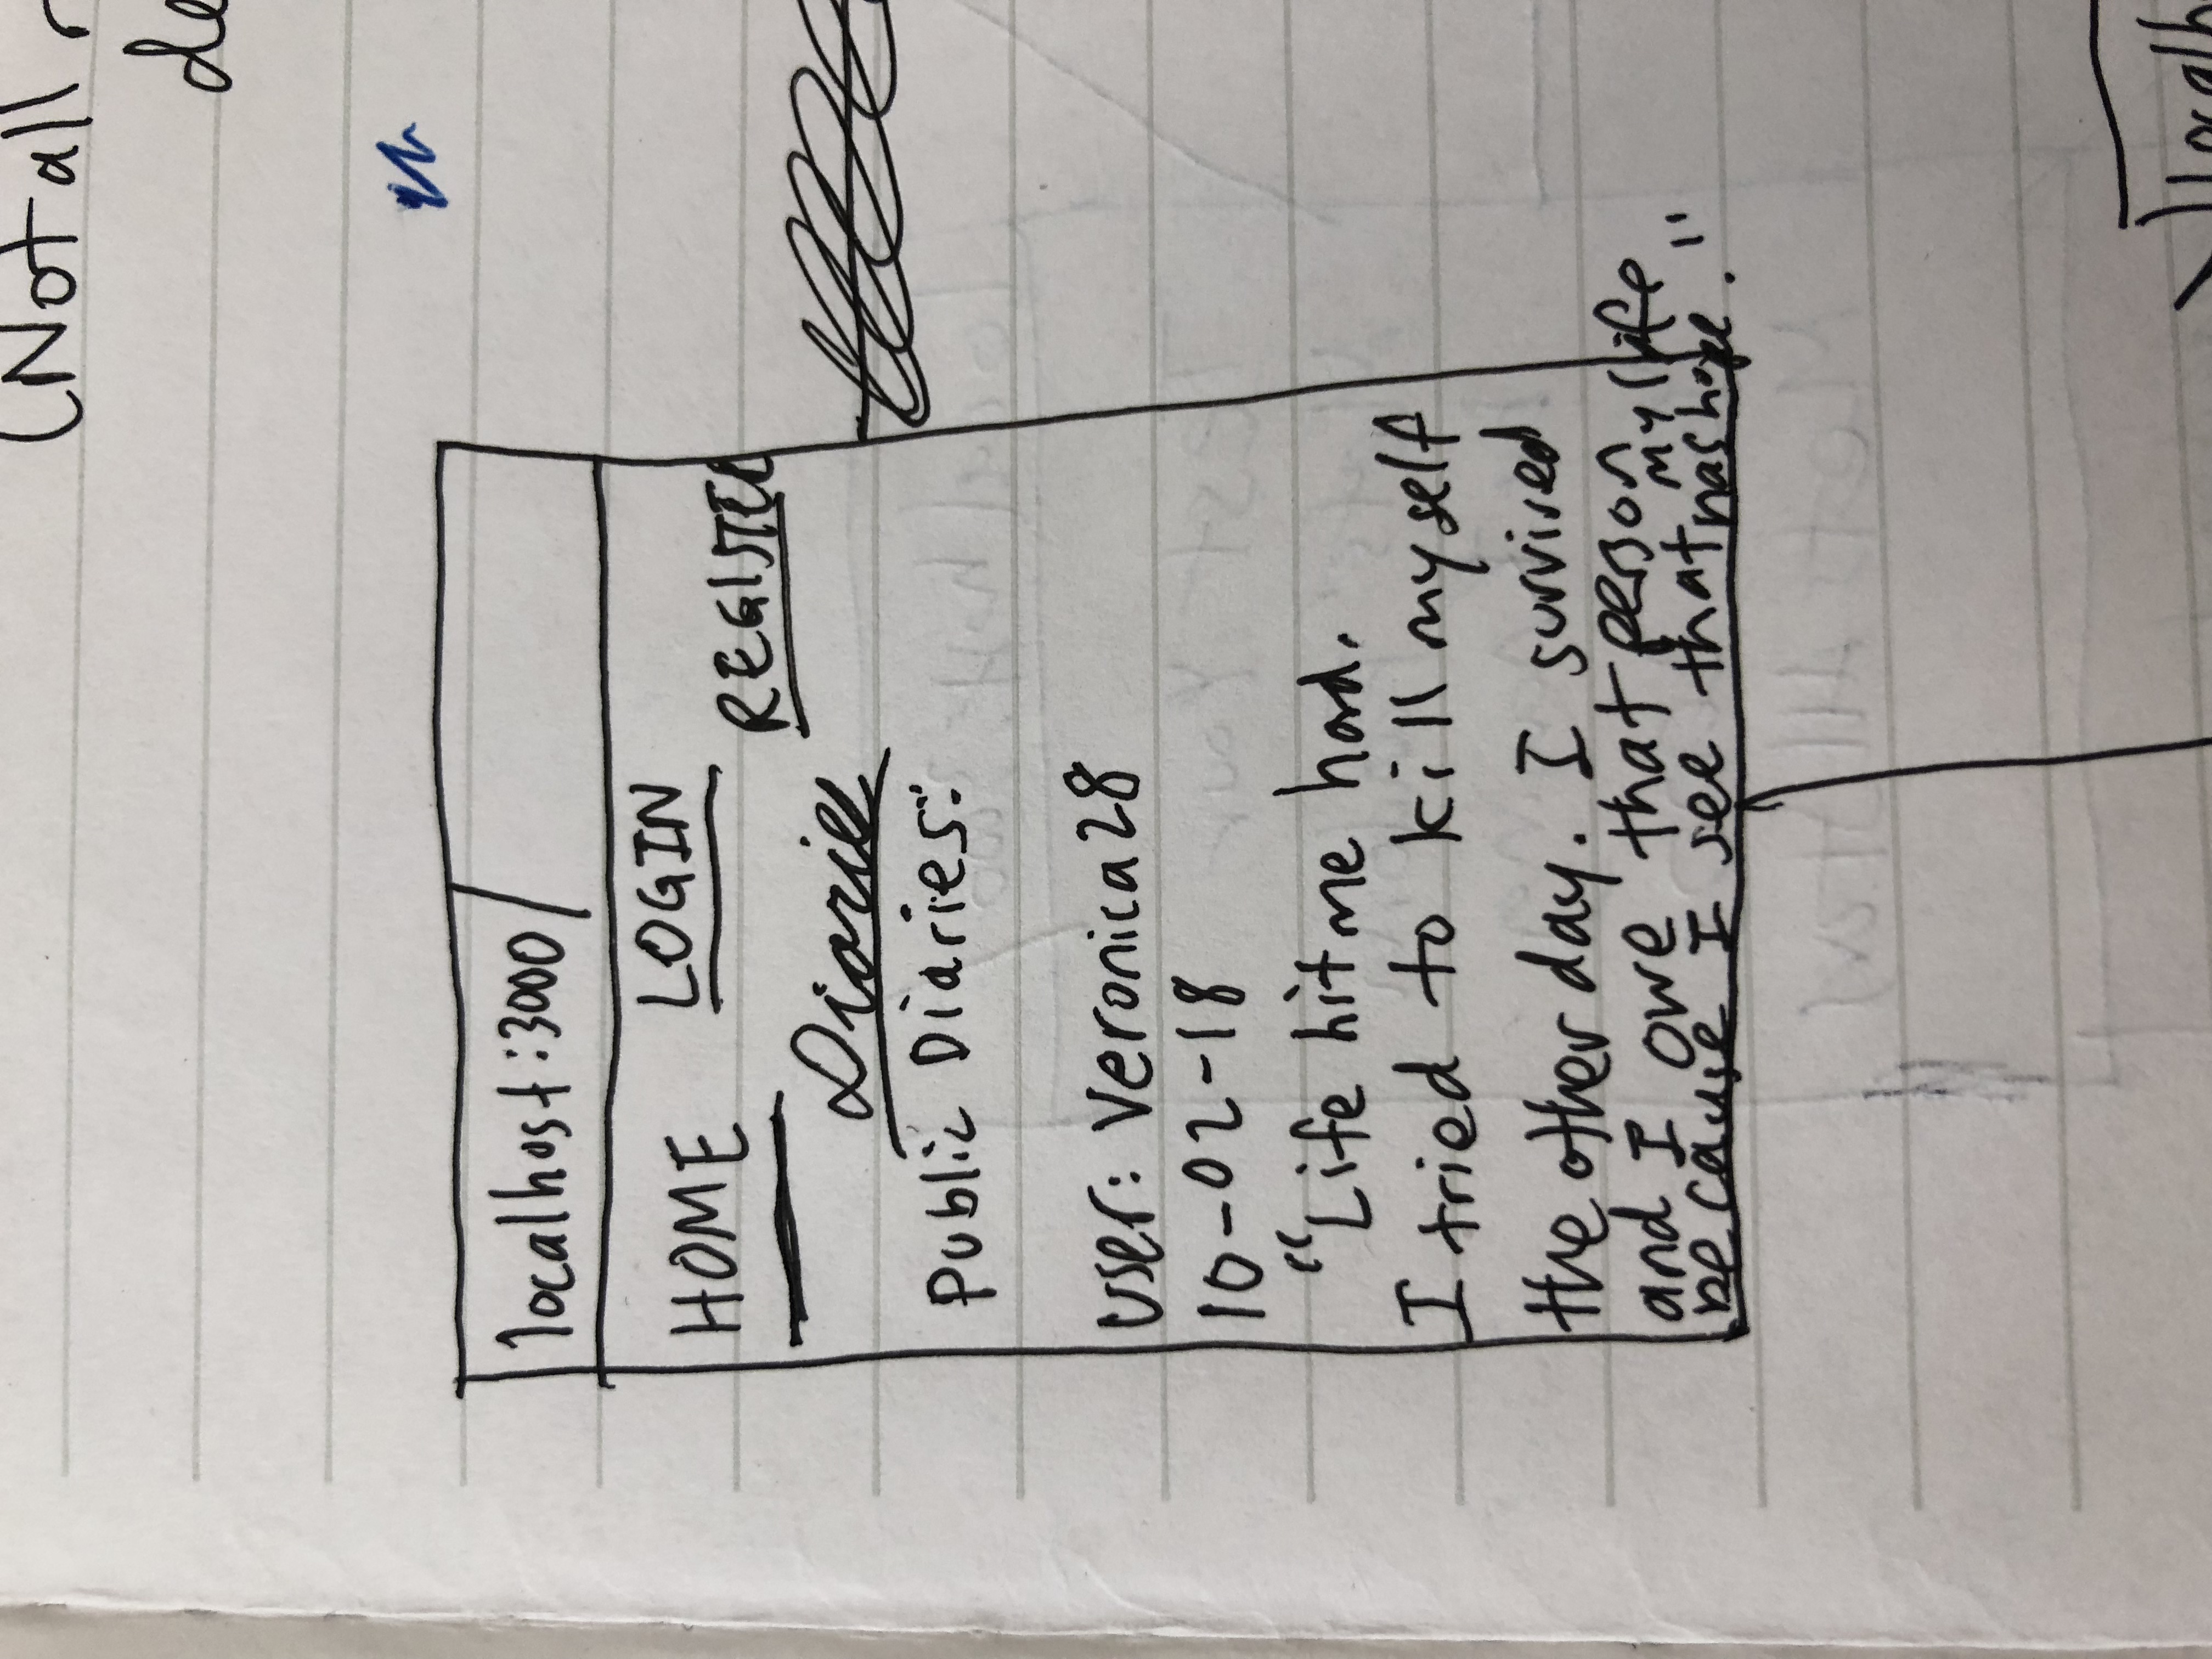 (Not all
de
localhost:3000/
HOME LOGIN REGISTER
Diaries
Public Diaries:
User: Veronica28
10-02-18
"Life hit me hard.
I tried to kill myself
the other day. I survived
and I owe that person my life
because I see that has hope."
localh